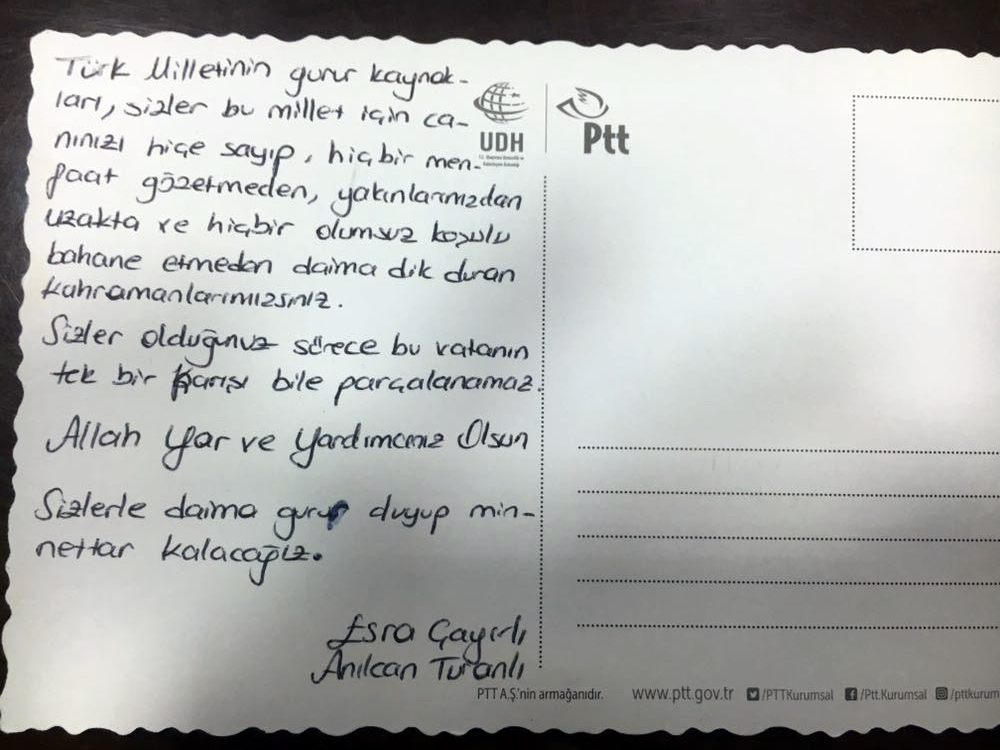 Türk Milletinin gurur kaynak-
ları, sizler bu millet için ca-
nınızı hiçe sayıp, hiçbir men-
faat gözetmeden, yakınlarınızdan
uzakta ve hiçbir olumsuz koşulu
bahane etmeden daima dik duran
kahramanlarımızsınız.
Sizler olduğunuz sürece bu vatanın
tek bir karışı bile parçalanamaz.
Allah Yar ve Yardımcınız Olsun
Sizlerle daima gurur duyup min-
nettar kalacağız.
Esra Çayırlı
Anılcan Turanlı
UDH
Ptt
PTT A.Ş.'nin armağanıdır.
www.ptt.gov.tr /PTTKurumsal /Ptt.Kurumsal /pttkurum